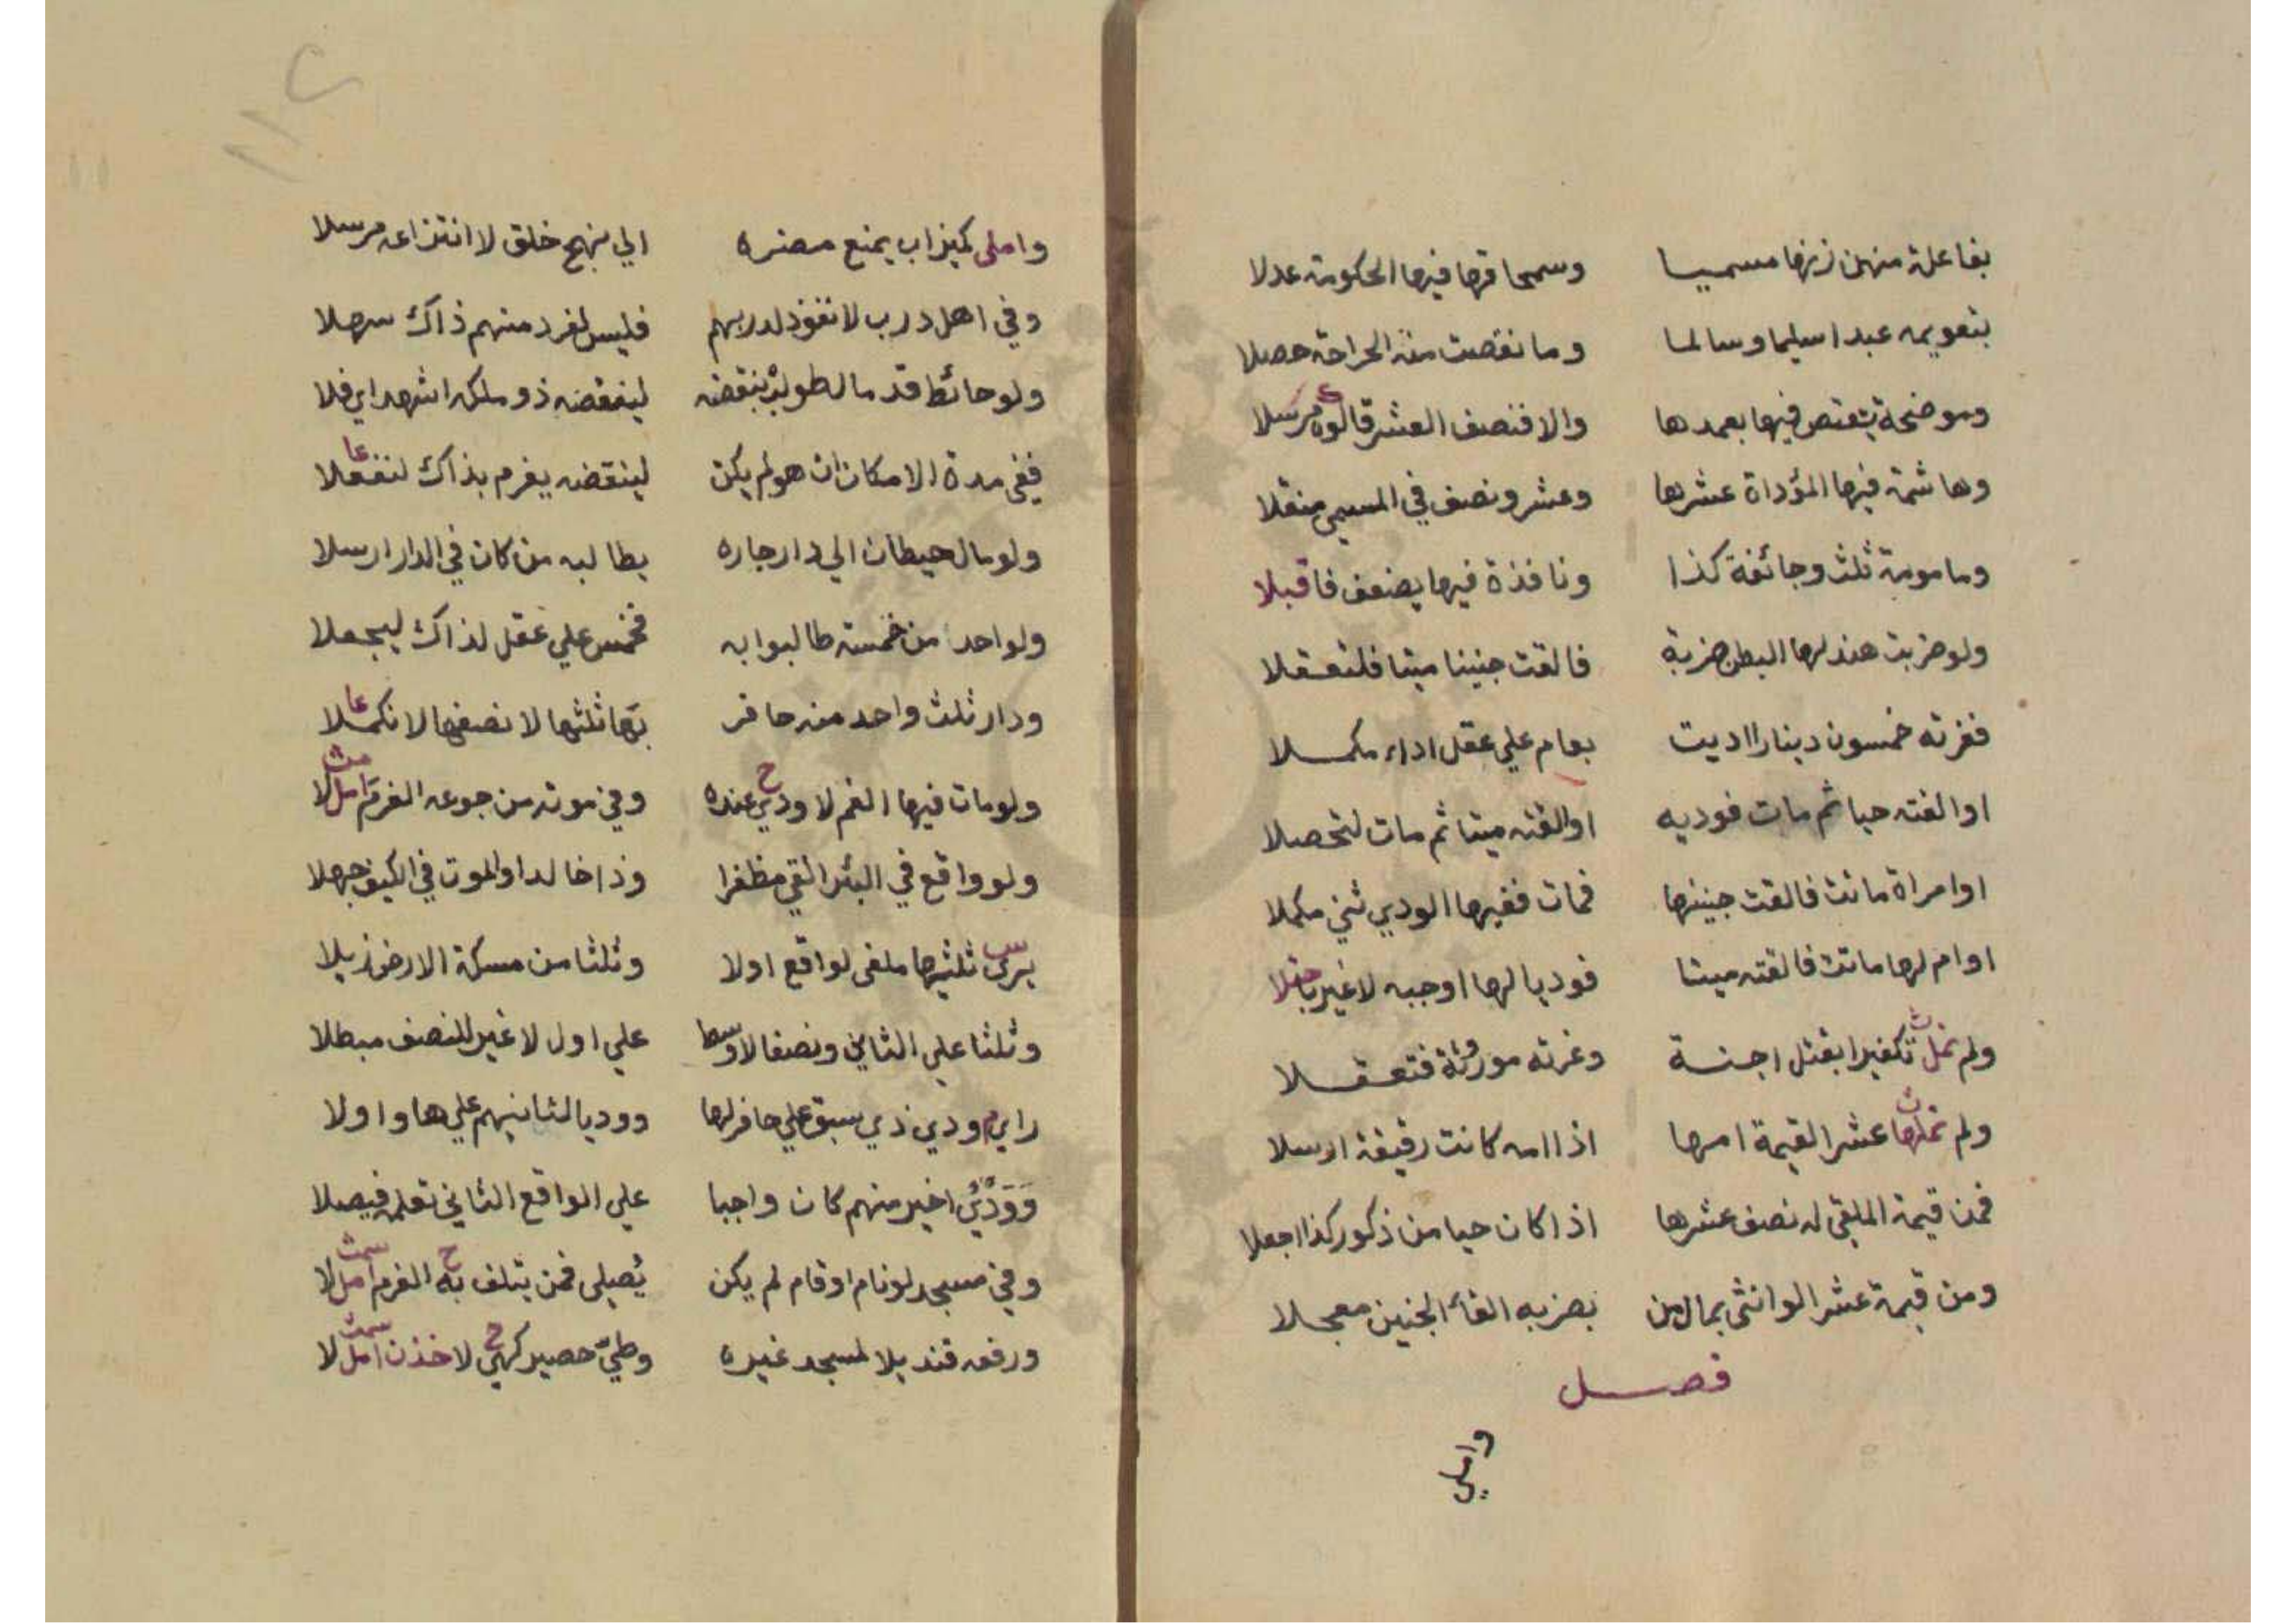 بفاعلة منهن زنها مسميا وسمحاقها فيها الحكومة عدلا
بتقويمه عبدا سليما وسالما وما نقصت منه الجراحة حصلا
وموضحة يقتص فيها بعمدها والا فنصف العشر قالوه مرسلا
وهاشمة فيها المؤداة عشرها وعشر ونصف في المسمى منقلا
ومامومة ثلث وجائفة كذا ونافذة فيها يضعف فاقبلا
ولو ضربت هند لها البطن ضربة فالقت جنينا ميتا فلتعقلا
فغرته خمسون دينارا اديت بعام علي عقل اداء مكملا
او القته حيا ثم مات فوديه او القته ميتا ثم مات لتحصلا
او امراة ماتت فالقت جنينها فمات ففيها الودي ثني مكملا
او ام لها ماتت فالقته ميتا فوديا لها اوجبه لا غير
ولم تكفيرا بقتل اجنة وغرته موروثة فتعقلا
ولم عشر القيمة امها اذا امه كانت رقيقة ارسلا
فمن قيمة الملقي له نصف عشرها اذا كان حيا من ذكور كذا اجعلا
ومن قيمة عشر الو انثى بمال من بضربه القاء الجنين معجلا
فصل
واملي
١١٢
واملى كميزاب يمنع مضره الي نهج خلق لا انتزاعه مرسلا
وفي اهل درب لا نفوذ لدربهم فليس لفرد منهم ذاك سهلا
ولو حائط قد مال طولبْ بنقضه لينقضه ذو ملكه اشهد اي فلا
ففي مدة الامكان ان هو لم يكن لينقضه يغرم بذاك لنفعلا
ولو مال حيطان الي دار جاره يطالبه من كان في الدار ارسلا
ولو احدا من خمسة طالبوا به فخمس علي عقل لذاك ليجعلا
ودار ثلث واحد منه حافر بها ثلثها لا نصفها لا نكملا
ولو مات فيها الغم لا ودي عنده وفي موته من جوعه الغرم املا لا
ولو واقع في البئر القي مظفرا وذا خالدا والموت في الكيف جهلا
يرى ثلثيها ملقى لواقع اولا وثلثا من مسكة الارض
وثلثا علي الثاني ونصفا لاوسط علي اول لا غير للنصف مبطلا
راي ودي ذي سبق علي حافر لها ووديا لثانيهم علي ها واولا
وَوَدْيُ اخير منهم كان واجبا علي الواقع الثاني تعلمه فيصلا
وفي مسجد لو نام او قام لم يكن يُصيلى فمن يتلف به الغرم امل لا
ورفعه قنديلا لمسجد غيره وطيّ حصير كهي لا خذن امل لا